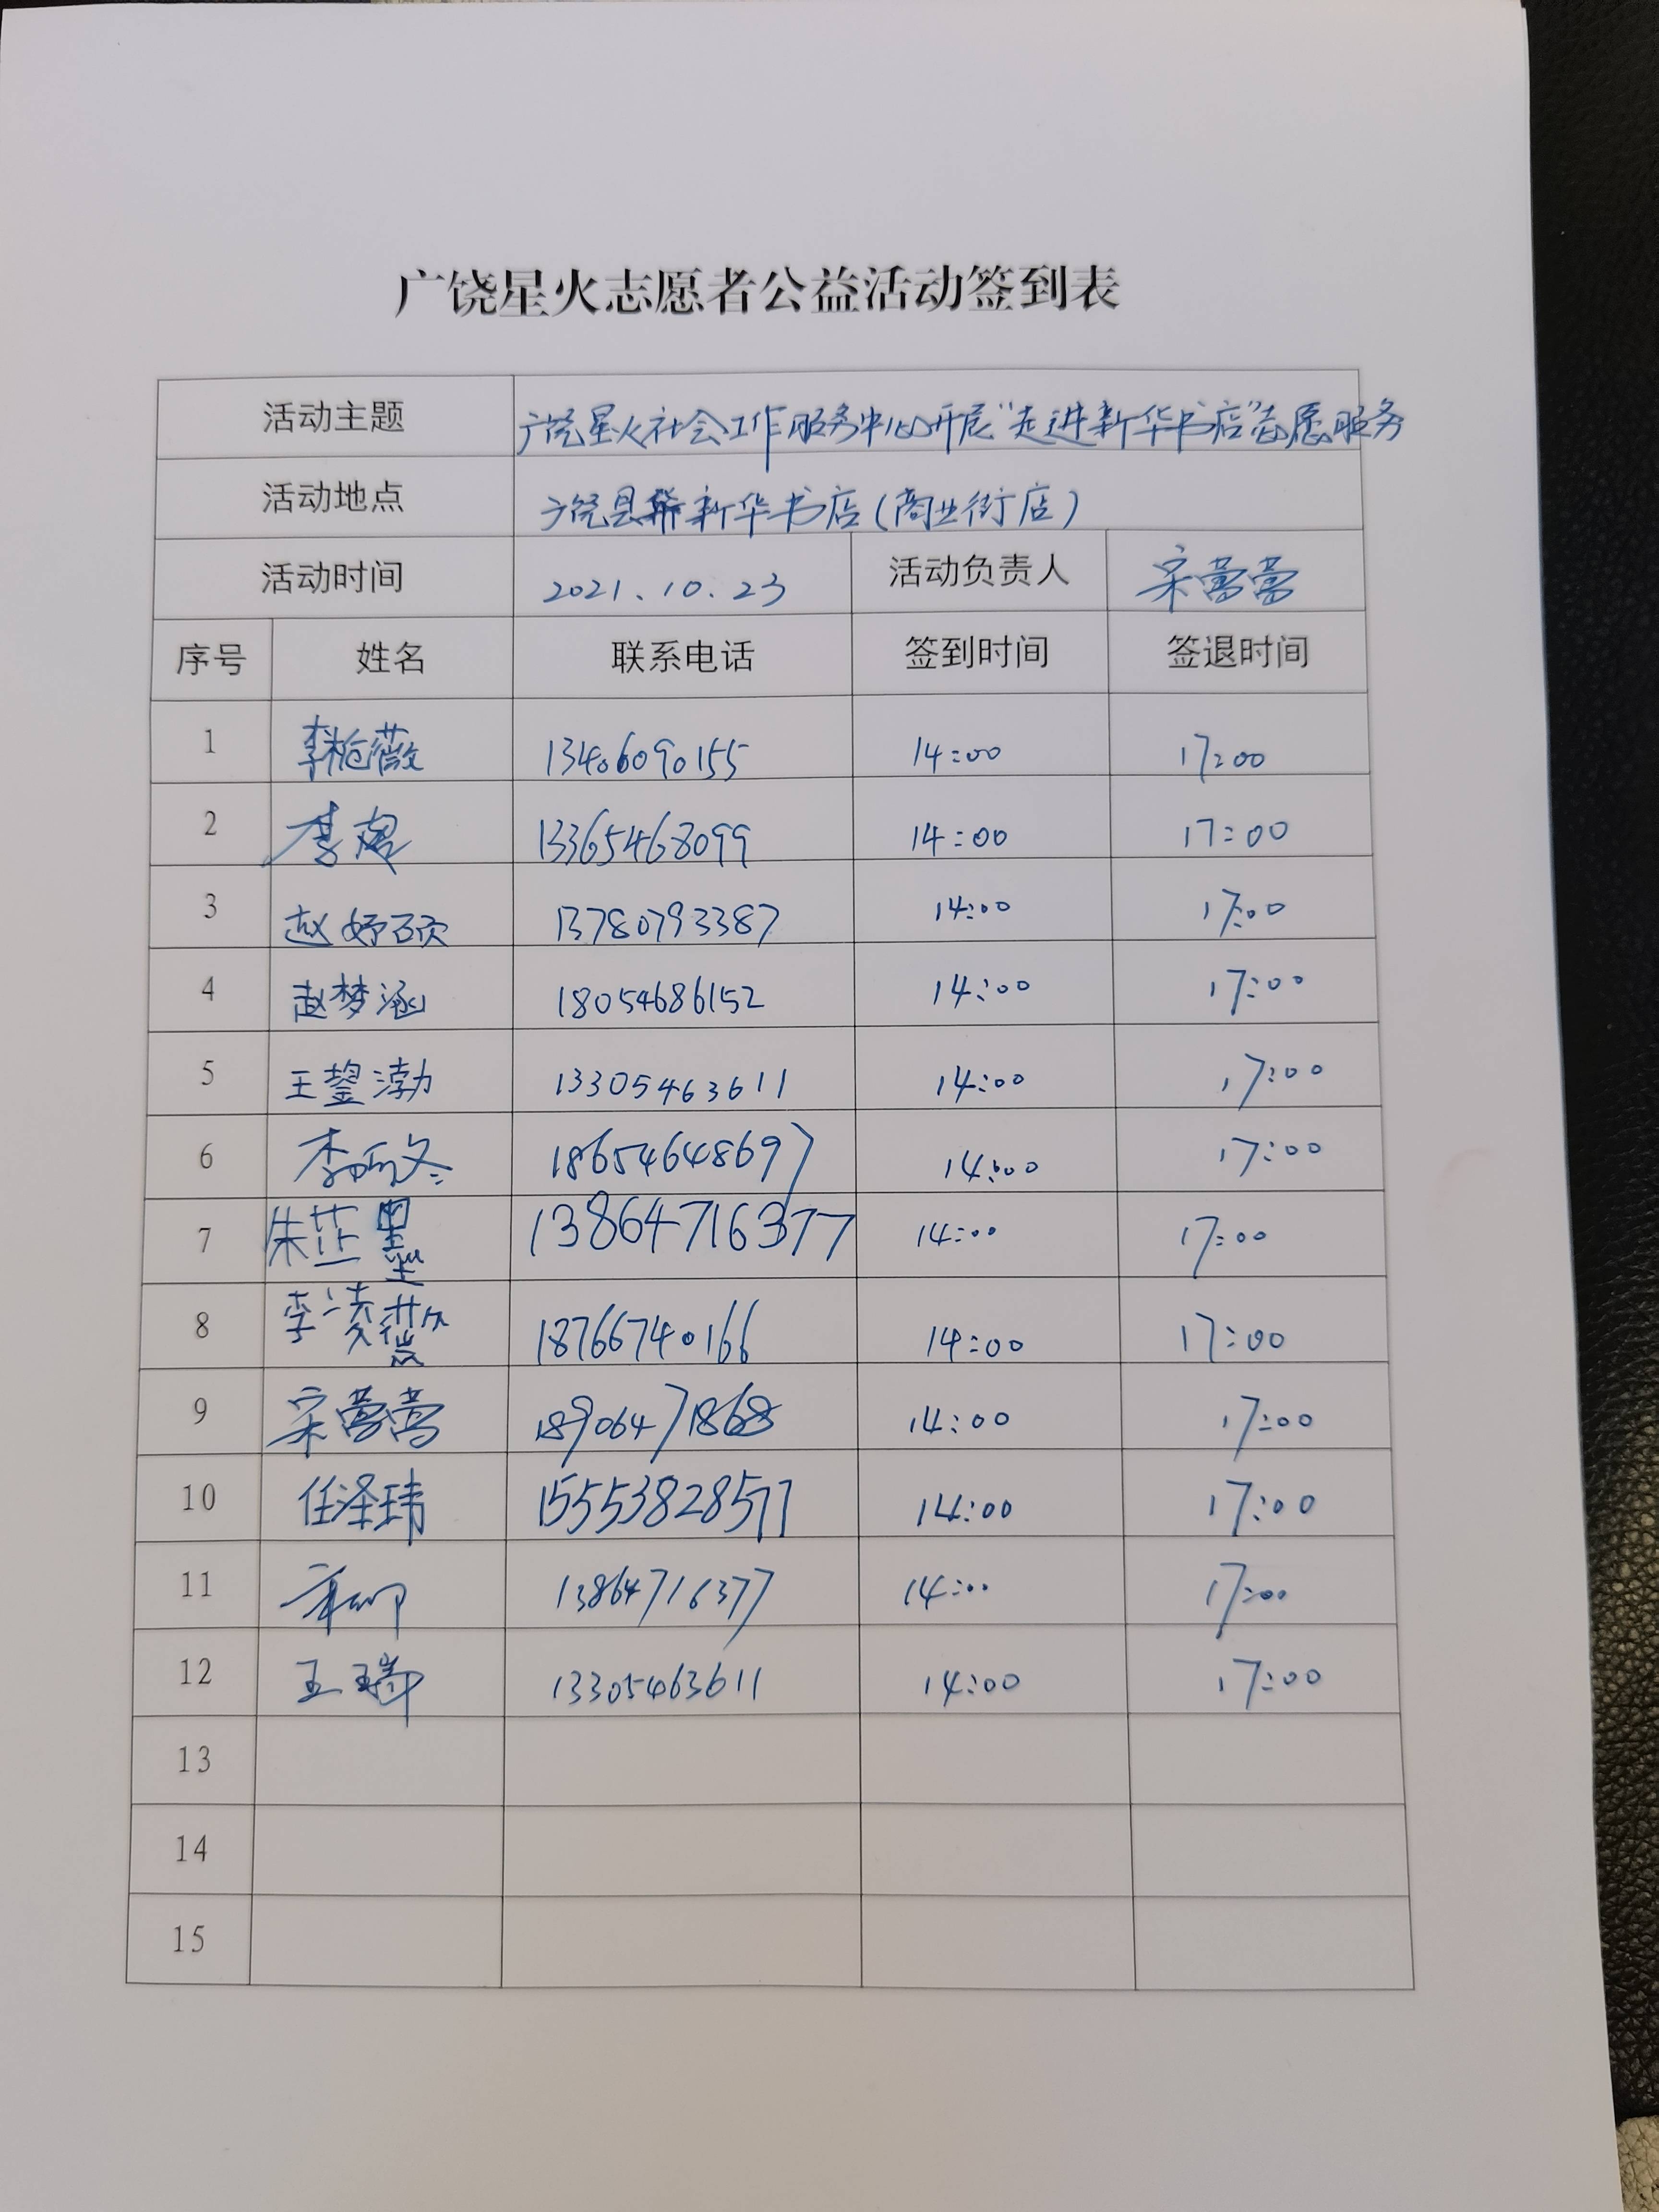 广饶星火志愿者公益活动签到表
活动主题 广饶星火社会工作服务中心开展"走进新华书店"志愿服务
活动地点 广饶县新华书店(商业街店)
活动时间 2021.10.23 活动负责人 宋莺莺
序号 姓名 联系电话 签到时间 签退时间
1 李艳薇 13406090155 14:00 17:00
2 李 13365468099 14:00 17:00
3 赵妤硕 13780793387 14:00 17:00
4 赵梦涵 18054686152 14:00 17:00
5 王鋆渤 13305463611 14:00 17:00
6 李 18654648697 14:00 17:00
7 朱芷墨 13864716377 14:00 17:00
8 李凌薇 18766740166 14:00 17:00
9 宋莺莺 18906471868 14:00 17:00
10 任泽玮 15553828577 14:00 17:00
11 13864716377 14:00 17:00
12 王瑞 13305463611 14:00 17:00
13
14
15